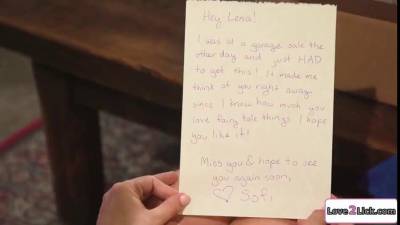 Hey Lena!
I was at a garage sale the
other day and just HAD
to get this! It made me
think of you right away
since I know how much you
love fairy tale things. I hope
you like it!
Miss you & hope to see
you again soon,
♡ Sofi
Love2Lick.com